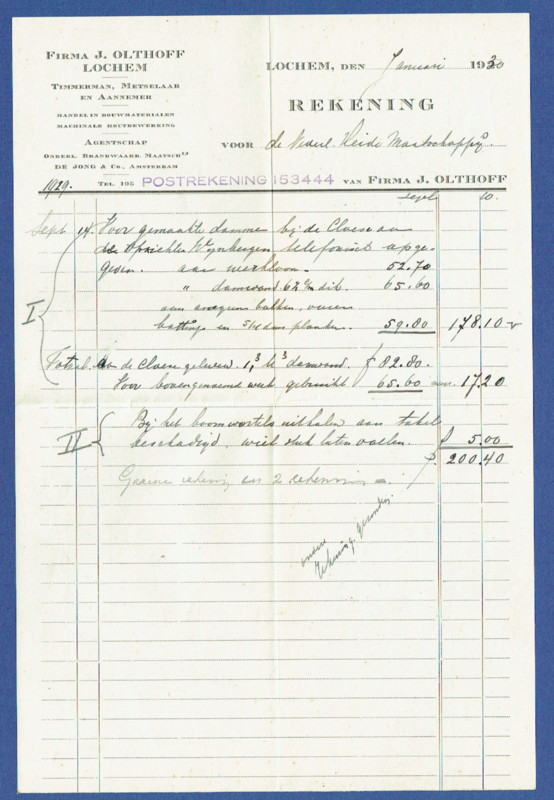 FIRMA J. OLTHOFF
LOCHEM
TIMMERMAN, METSELAAR
EN AANNEMER
HANDEL IN BOUWMATERIALEN
MACHINALE HOUTBEWERKING
AGENTSCHAP
ONDERL. BRANDWAARB. MAATSCH.IJ
DE JONG & CO., AMSTERDAM
TEL. 195
LOCHEM, DEN Januari 1930
REKENING
VOOR de Nederl. Heide Maatschappij.
1929. POSTREKENING 153444 VAN FIRMA J. OLTHOFF
zegel 10.
Sept 14. Voor gemaakte damme bij de Cloese aan
de Opzichter Wijnbergen telefonisch opge-
geven. aan werkloon. 52.70
" damwand 62 dit. 65.60
balken, vuren
battings en planken. 59.80 178.10
I
de Cloese 1,3 M3 damwand. f 82.80.
Voor bovengenoemd werk gebruikt 65.60 17.20
II
Bij het boomwortels uithalen een takel
beschadigd, wiel stuk laten vallen. f 5.00
f. 200.40
Gaarne rekening in 2 rekeningen
onder